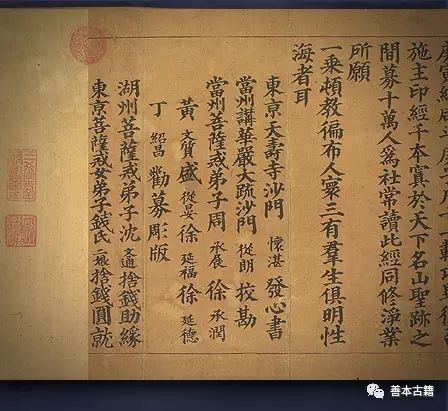 施主印經千本寘於天下名山聖跡之
間募十萬人爲社常讀此經同修淨業
所願
一乘頓教徧布人寰三有羣生俱明性
海者耳
東京天壽寺沙門 懷湛 發心書
當州講華嚴大疏沙門 從朗 挍勘
當州菩薩戒弟子周 承展 徐 承潤
黃 文質 盛 徐 延福 徐 延德
丁 紹昌 勸募彫版
湖州菩薩戒弟子沈 捨錢助緣
東京菩薩戒女弟子錢氏 捨錢圓就
善本古籍